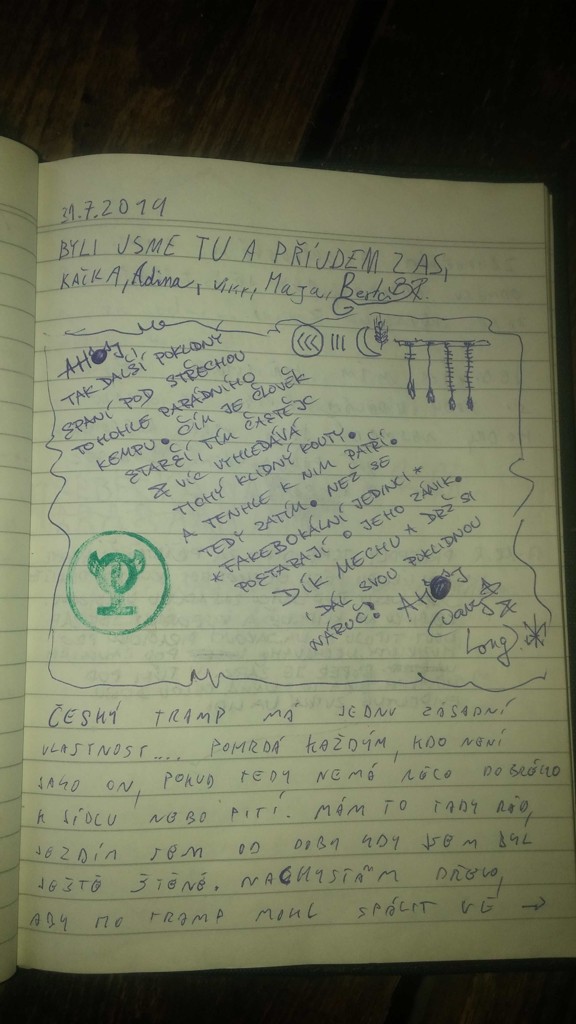 31.7.2019
BYLI JSME TU A PŘIJDEM ZAS,
KAČKA, Adina, Vikk, Maja, Berta
AHOJ,
TAK DALŠÍ POKLIDNÝ
SPANÍ POD STŘECHOU
TOHOHLE PARÁDNÍHO
KEMPU. ČÍM JE ČLOVĚK
STARŠÍ, TÍM ČASTĚJC
& VÍC VYHLEDÁVÁ
TICHÝ KLIDNÝ KOUTY.
A TENHLE K NIM PATŘÍ.
TEDY ZATÍM. NEŽ SE
*FAKEBOKÁLNÍ JEDINCI*
POSTARAJÍ O JEHO ZÁNIK.
DÍK MECHU & DRŽ SI
I DÁL SVOU POKLIDNOU
NÁRUČ! AHOJ
Long.
ČESKÝ TRAMP MÁ JEDNU ZÁSADNÍ
VLASTNOST.... POMRDÁ KAŽDÝM, KDO NENÍ
JAKO ON, POKUD TEDY NEMÁ NĚCO DOBRÉHO
K JÍDLU NEBO PITÍ. MÁM TO TADY RÁD,
JEZDÍM SEM OD DOBY KDY JSEM BYL
JEŠTĚ ŠTĚNĚ. NACHYSTÁM DŘEVO,
ABY HO TRAMP MOHL SPÁLIT VE →